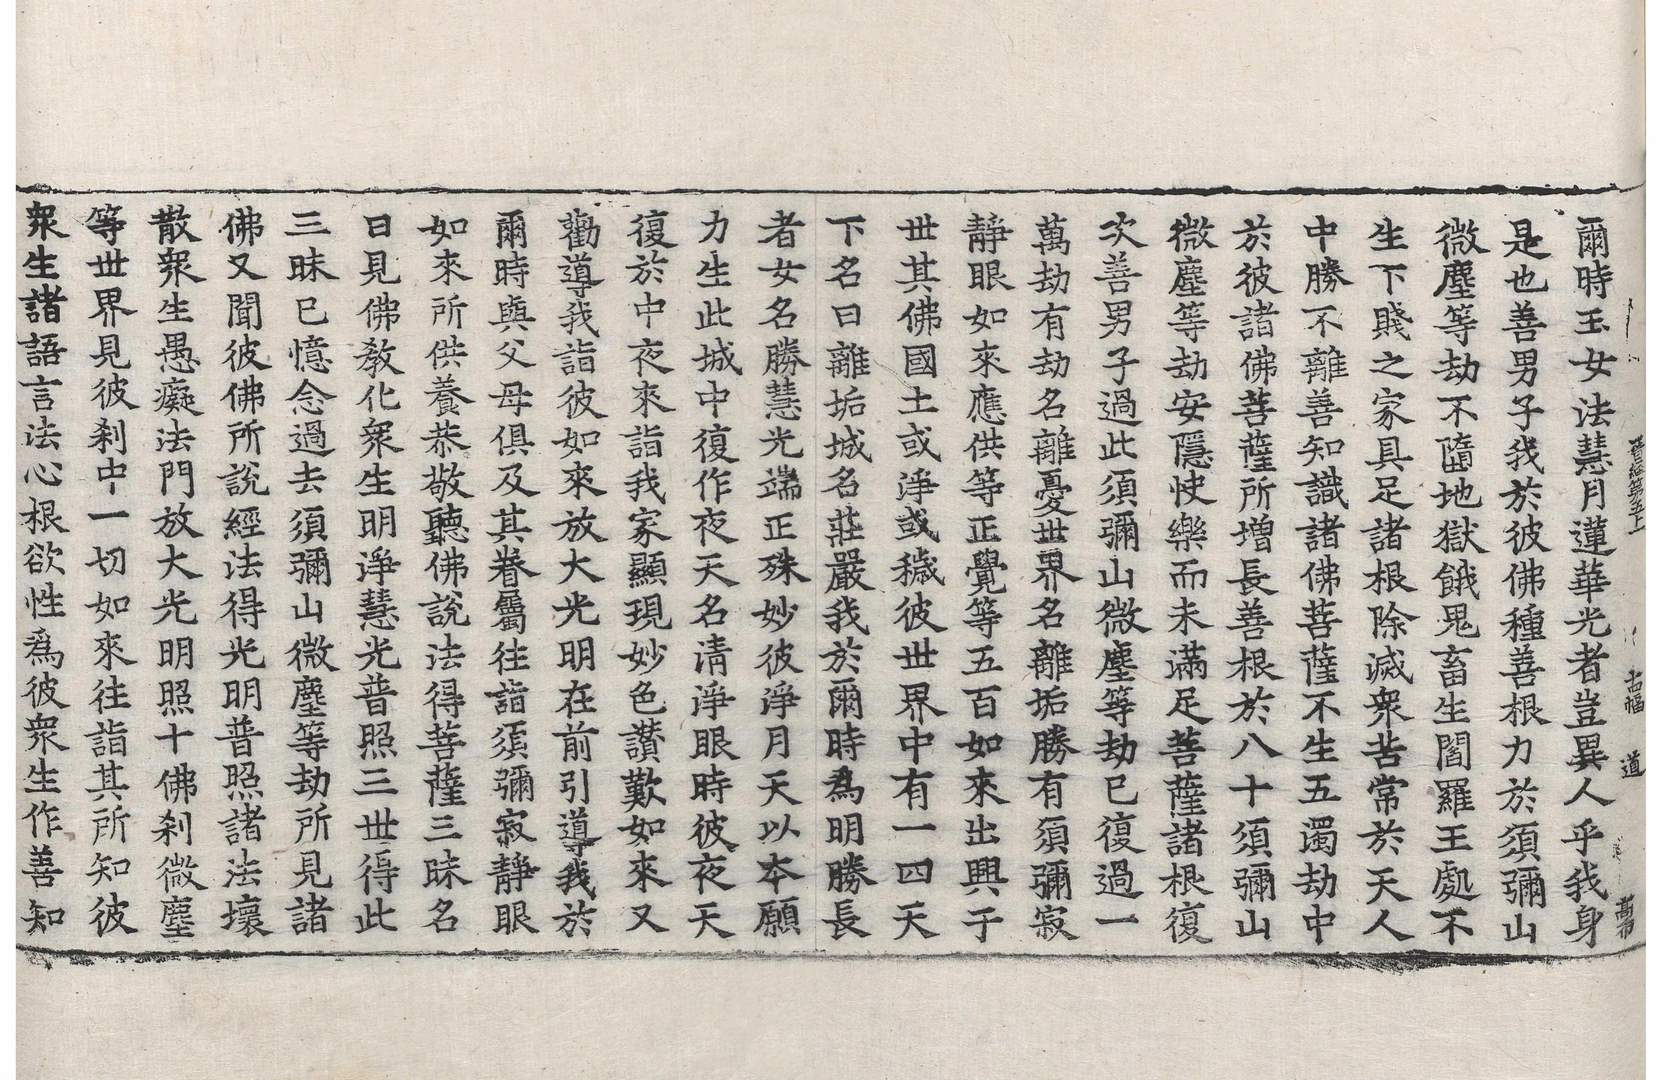 爾時玉女法慧月蓮華光者豈異人乎我身
是也善男子我於彼佛種善根力於須彌山
微塵等劫不墮地獄餓鬼畜生閻羅王處不
生下賤之家具足諸根除滅衆苦常於天人
中勝不離善知識諸佛菩薩不生五濁劫中
於彼諸佛菩薩所增長善根於八十須彌山
微塵等劫安隱快樂而未滿足菩薩諸根復
次善男子過此須彌山微塵等劫已復過一
萬劫有劫名離憂世界名離垢勝有須彌寂
靜眼如來應供等正覺等五百如來出興于
世其佛國土或淨或穢彼世界中有一四天
下名曰離垢城名莊嚴我於爾時爲明勝長
者女名勝慧光端正殊妙彼淨月天以本願
力生此城中復作夜天名清淨眼時彼夜天
復於中夜來詣我家顯現妙色讃歎如來又
勸導我詣彼如來放大光明在前引導我於
爾時與父母俱及其眷屬往詣須彌寂靜眼
如來所供養恭敬聽佛說法得菩薩三昧名
曰見佛教化衆生明淨慧光普照三世得此
三昧已憶念過去須彌山微塵等劫所見諸
佛又聞彼佛所說經法得光明普照諸法壞
散衆生愚癡法門放大光明照十佛剎微塵
等世界見彼剎中一切如來往詣其所知彼
衆生諸語言法心根欲性爲彼衆生作善知